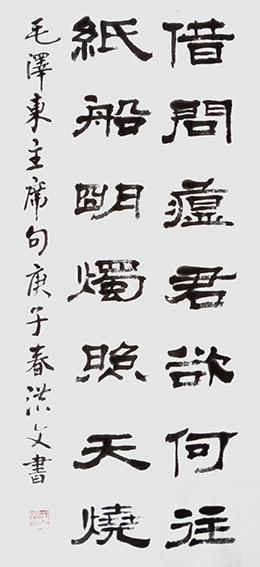 借問瘟君欲何往
紙船明燭照天燒
毛澤東主席句庚子春洪文書